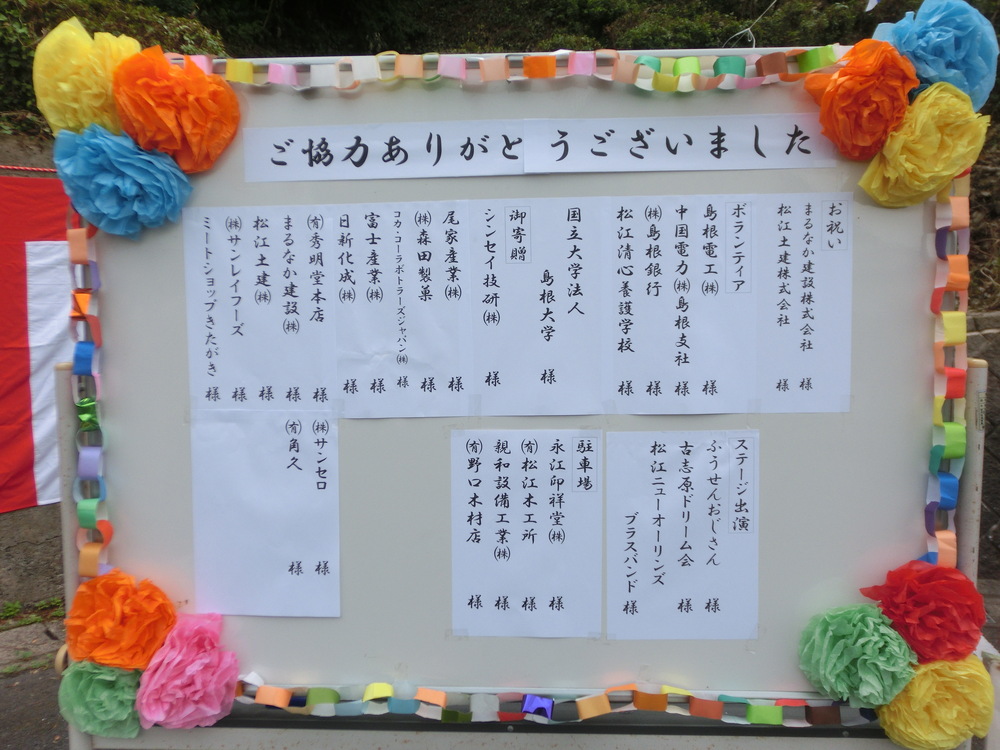 ご協力ありがとうございました
お祝い
まるなか建設株式会社 様
松江土建株式会社 様
ボランティア
島根電工㈱ 様
中国電力㈱島根支社 様
㈱島根銀行 様
松江清心養護学校 様
国立大学法人
島根大学 様
御寄贈
シンセイ技研㈱ 様
尾家産業㈱ 様
㈱森田製菓 様
コカ・コーラボトラーズジャパン㈱ 様
富士産業㈱ 様
日新化成㈱ 様
㈲秀明堂本店 様
まるなか建設㈱ 様
松江土建㈱ 様
㈱サンレイフーズ 様
ミートショップきたがき 様
㈱サンセロ 様
㈲角久 様
ステージ出演
ふうせんおじさん 様
古志原ドリーム会 様
松江ニューオーリンズ
ブラスバンド 様
駐車場
永江印祥堂㈱ 様
㈲松江木工所 様
親和設備工業㈱ 様
㈲野口木材店 様